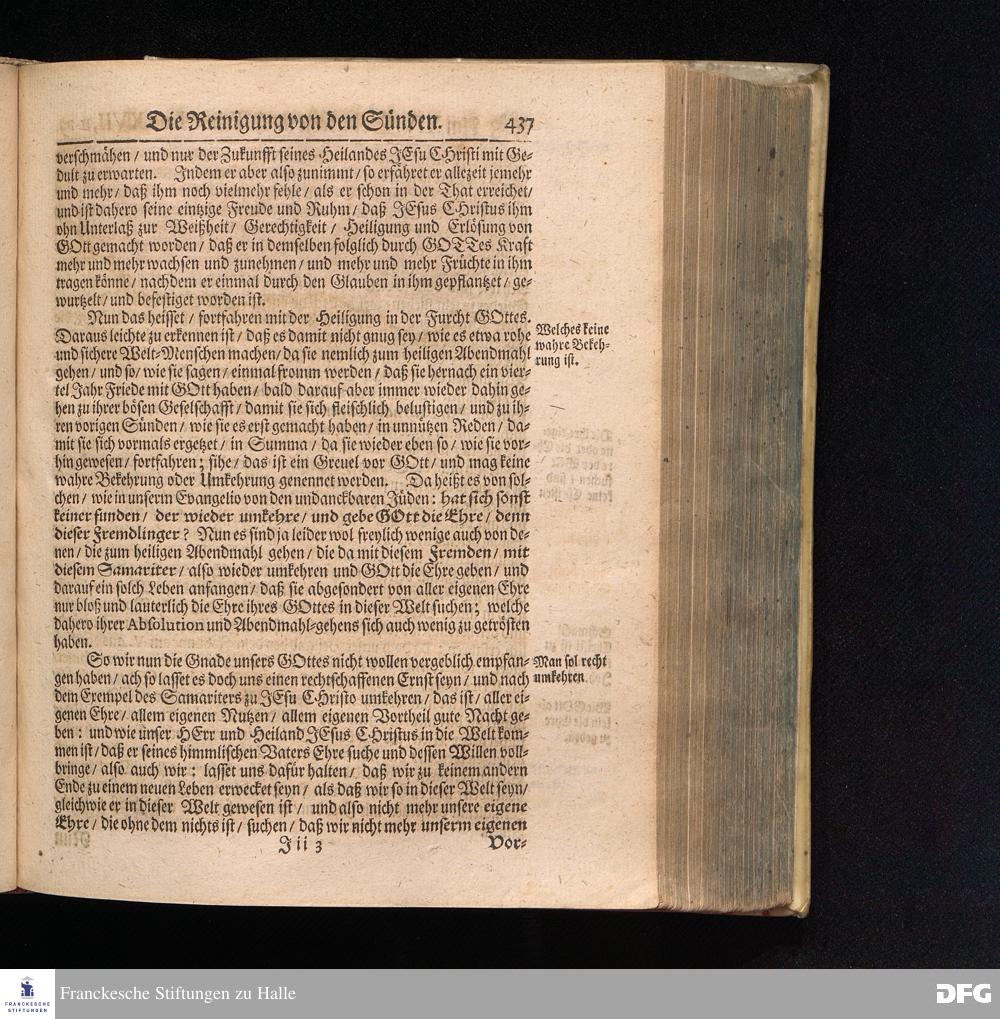 Die Reinigung von den Sünden. 437
verschmähen / und nur der Zukunfft seines Heilandes JEsu CHristi mit Ge-
dult zu erwarten. Indem er aber also zunimmt / so erfähret er allezeit jemehr
und mehr / daß ihm noch vielmehr fehle / als er schon in der That erreichet /
und ist dahero seine eintzige Freude und Ruhm / daß JEsus CHristus ihm
ohn Unterlaß zur Weißheit / Gerechtigkeit / Heiligung und Erlösung von
GOtt gemacht worden / daß er in demselben folglich durch GOTTes Kraft
mehr und mehr wachsen und zunehmen / und mehr und mehr Früchte in ihm
tragen könne / nachdem er einmal durch den Glauben in ihm gepflantzet / ge-
wurtzelt / und befestiget worden ist.
Nun das heisset / fortfahren mit der Heiligung in der Furcht GOttes.
Daraus leichte zu erkennen ist / daß es damit nicht gnug sey / wie es etwa rohe
und sichere Welt-Menschen machen / da sie nemlich zum heiligen Abendmahl
gehen / und so / wie sie sagen / einmal fromm werden / daß sie hernach ein vier-
tel Jahr Friede mit GOtt haben / bald darauf aber immer wieder dahin ge-
hen zu ihrer bösen Geselschafft / damit sie sich fleischlich belustigen / und zu ih-
ren vorigen Sünden / wie sie es erst gemacht haben / in unnützen Reden / da-
mit sie sich vormals ergetzet / in Summa / da sie wieder eben so / wie sie vor-
hin gewesen / fortfahren; sihe / das ist ein Greuel vor GOtt / und mag keine
wahre Bekehrung oder Umkehrung genennet werden. Da heißt es von sol-
chen / wie in unserm Evangelio von den undanckbaren Jüden: hat sich sonst
keiner funden / der wieder umkehre / und gebe GOtt die Ehre / denn
dieser Fremdlinger? Nun es sind ja leider wol freylich wenige auch von de-
nen / die zum heiligen Abendmahl gehen / die da mit diesem Fremden / mit
diesem Samariter / also wieder umkehren und GOtt die Ehre geben / und
darauf ein solch Leben anfangen / daß sie abgesondert von aller eigenen Ehre
nur bloß und lauterlich die Ehre ihres GOttes in dieser Welt suchen; welche
dahero ihrer Absolution und Abendmahl-gehens sich auch wenig zu getrösten
haben.
Welches keine
wahre Bekeh-
rung ist.
So wir nun die Gnade unsers GOttes nicht wollen vergeblich empfan-
gen haben / ach so lasset es doch uns einen rechtschaffenen Ernst seyn / und nach
dem Exempel des Samariters zu JEsu CHristo umkehren / das ist / aller ei-
genen Ehre / allem eigenen Nutzen / allem eigenen Vortheil gute Nacht ge-
ben: und wie unser HErr und Heiland JEsus CHristus in die Welt kom-
men ist / daß er seines himmlischen Vaters Ehre suche und dessen Willen voll-
bringe / also auch wir: lasset uns dafür halten / daß wir zu keinem andern
Ende zu einem neuen Leben erwecket seyn / als daß wir so in dieser Welt seyn /
gleichwie er in dieser Welt gewesen ist / und also nicht mehr unsere eigene
Ehre / die ohne dem nichts ist / suchen / daß wir nicht mehr unserm eigenen
Man sol recht
umkehren
Jii 3 Vor-
FRANCKESCHE
STIFTUNGEN
Franckesche Stiftungen zu Halle
DFG